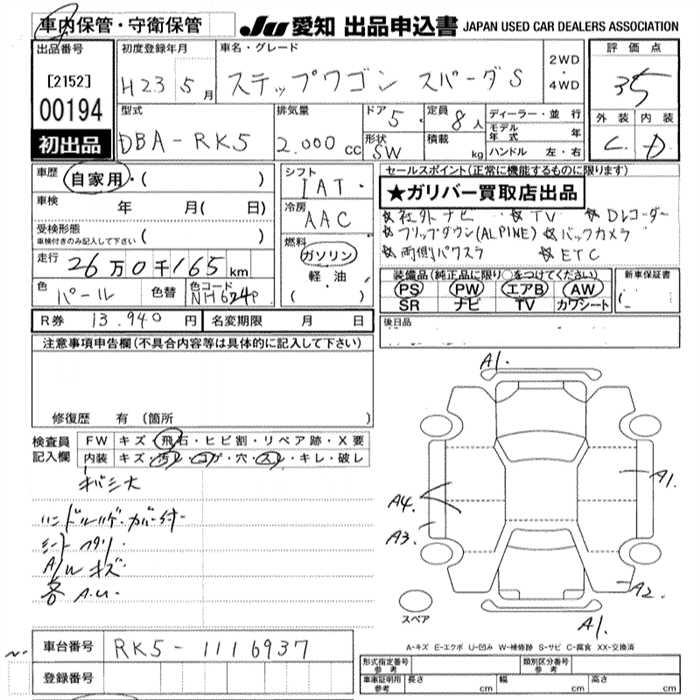 車内保管・守衛保管
JU 愛知 出品申込書 JAPAN USED CAR DEALERS ASSOCIATION
出品番号
[2152]
00194
初出品
初度登録年月
H23 5月
車名・グレード
ステップワゴン スパーダS
2WD
・
4WD
評価点
3.5
外装 内装
C D
型式
DBA-RK5
排気量
2.000 cc
ドア 5
定員 8人
形状 SW
積載 kg
ディーラー・並行
モデル年式 年
ハンドル 左・右
車歴
自家用・( )
車検 年 月( 日)
受検形態
車検付きのみ記入して下さい ( )
走行 26万0千165 km
色 パール 色替 色コード NH624P
シフト
IAT・
冷房
AAC
燃料
ガソリン
・
軽油
( )
セールスポイント(正常に機能するものに限ります)
★ガリバー買取店出品
☆社外ナビ ☆TV ☆Dレコーダー
☆フリップダウン(ALPINE) ☆バックカメラ
☆両側パワスラ ☆ETC
装備品(純正品に限り○をつけてください)
PS PW エアB AW
SR ナビ TV カワシート
新車保証書
R券 13.940円 名変期限 月 日
後日品
注意事項申告欄(不具合内容等は具体的に記入して下さい)
修復歴 有(箇所 )
検査員
記入欄
FW キズ・飛石・ヒビ割・リペア跡・X要
内装 キズ・汚レ・コゲ・穴・スレ・キレ・破レ
シート
A/Wキズ
各A.U.
A1.
A4.
A3.
A1.
A2.
A1.
スペア
A-キズ E-エクボ U-凹み W-補修跡 S-サビ C-腐食 XX-交換済
車台番号 RK5-1116937
登録番号
型式指定番号
参考
類別区分番号
参考
車庫証明用
参考
長さ cm 幅 cm 高さ cm